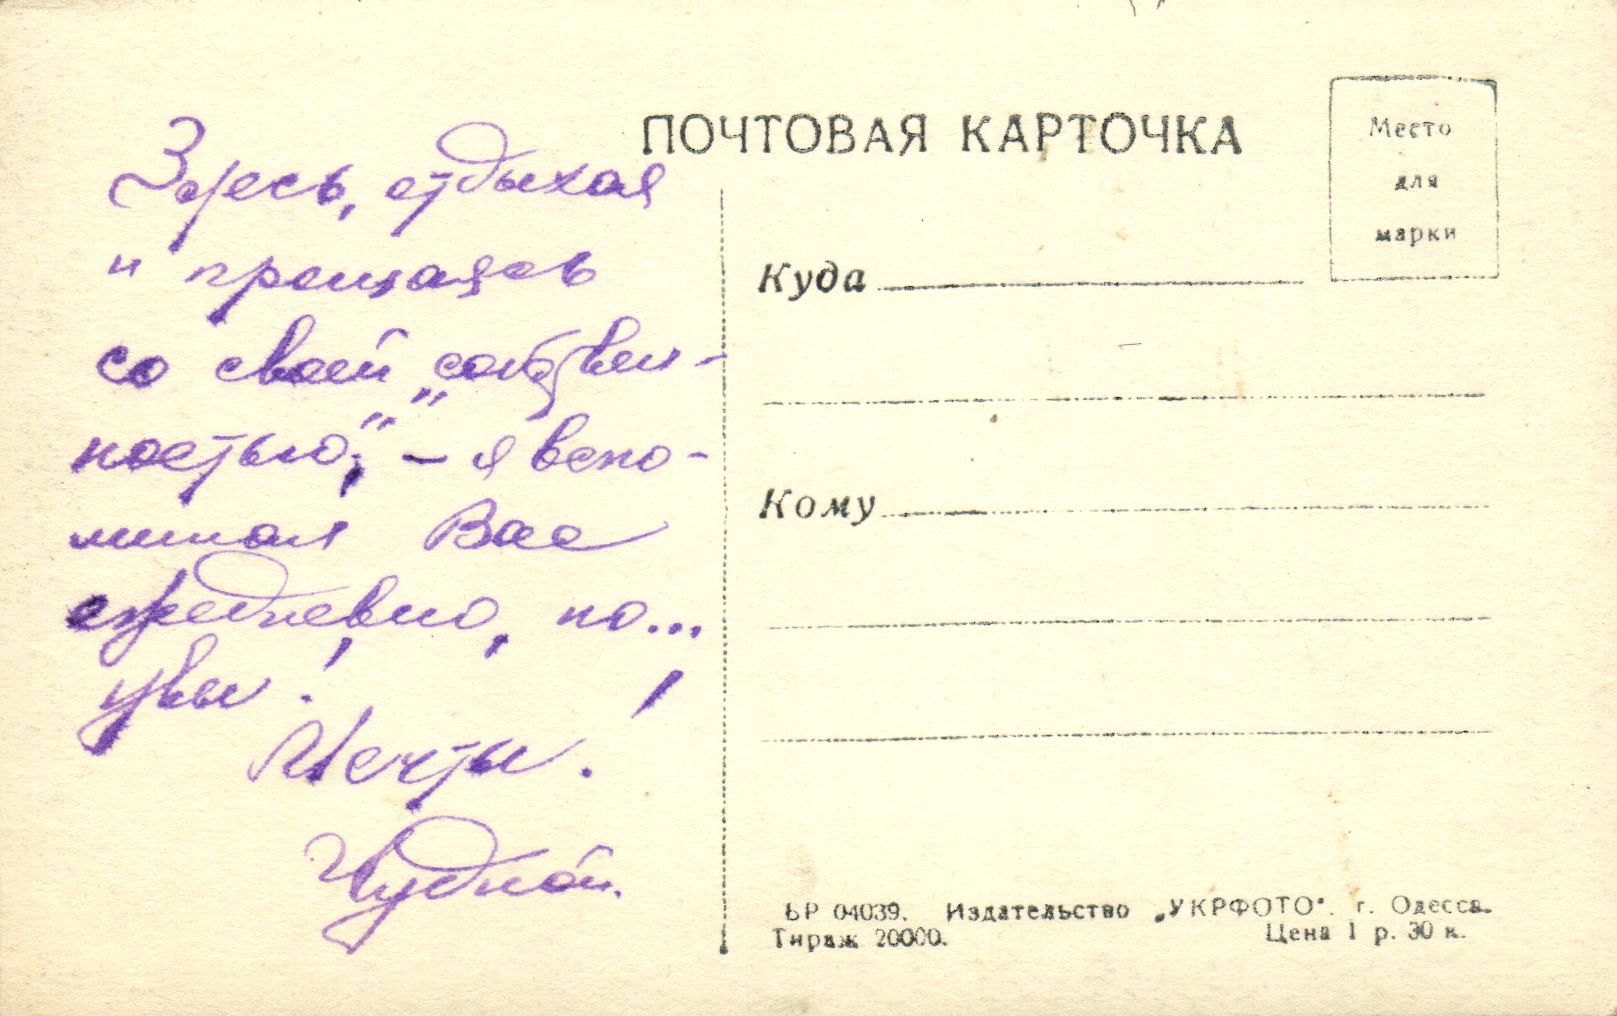 ПОЧТОВАЯ КАРТОЧКА
Место
для
марки
Здесь, отдыхая
и прощаясь
со своей „собствен-
ностью", – я вспо-
минал Вас
ежедневно, но...
увы!
Мечты!
Чудной.
Куда
Кому
БР 04039. Издательство „УКРФОТО". г. Одесса.
Тираж 20000. Цена 1 р. 30 к.